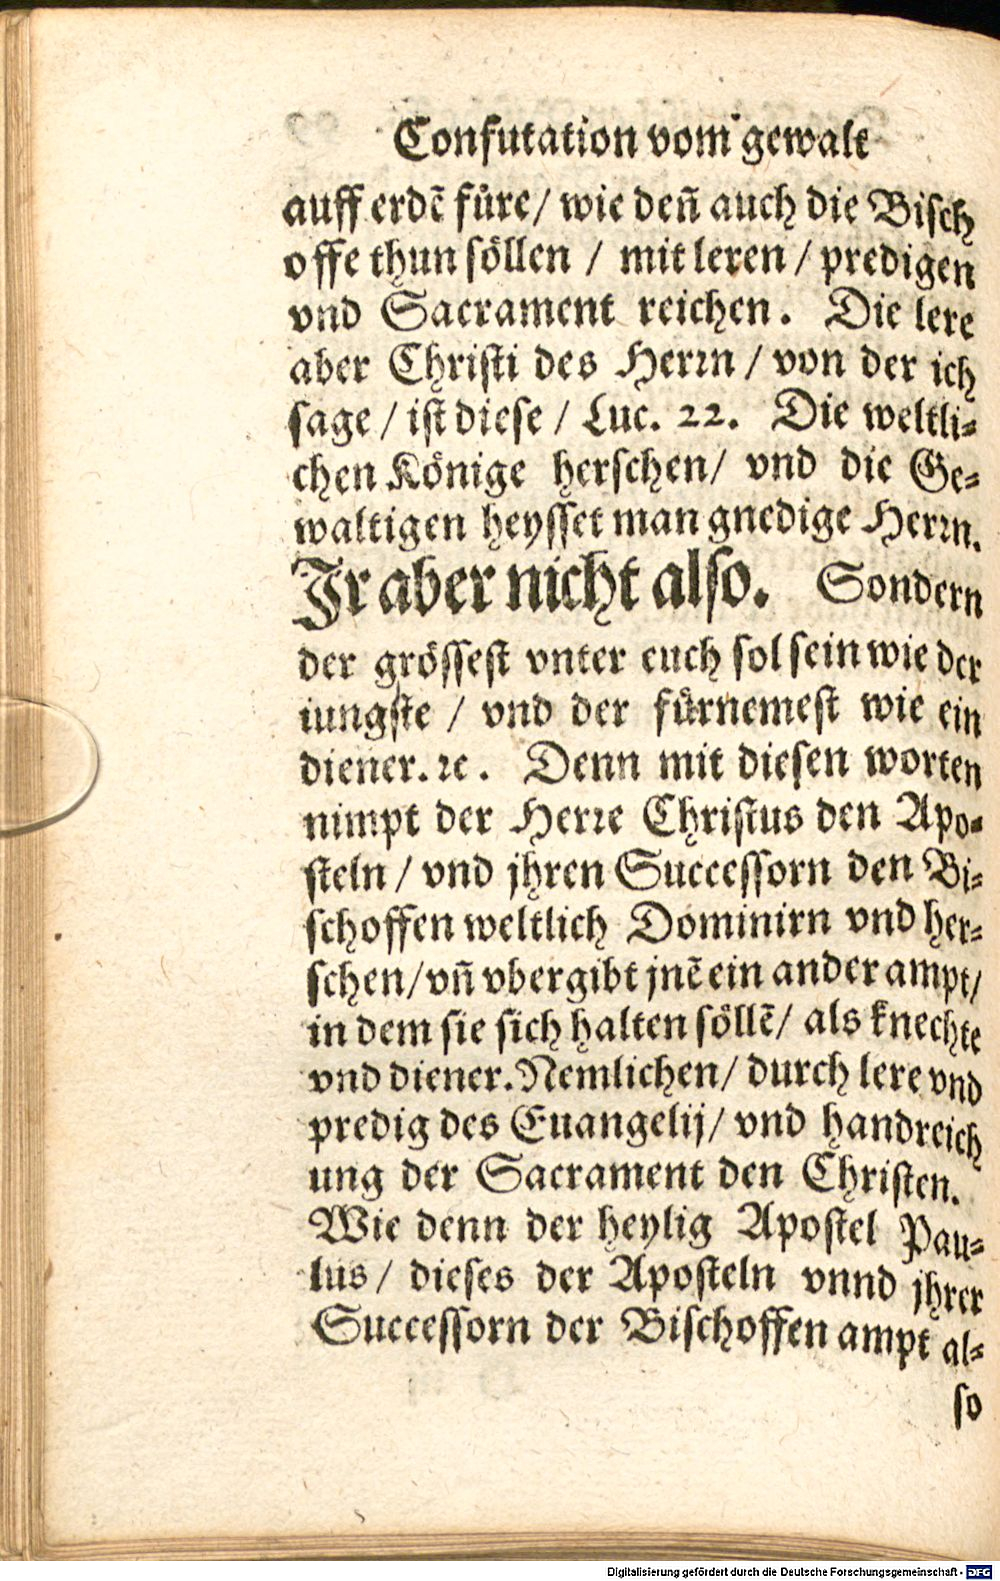 Confutation vom gewalt
auff erdē füre/ wie deñ auch die Bisch
offe thun söllen / mit leren / predigen
vnd Sacrament reichen. Die lere
aber Christi des Herrn / von der ich
sage / ist diese / Luc. 22. Die weltli-
chen Könige herschen/ vnd die Ge-
waltigen heysset man gnedige Herrn.
Jr aber nicht also. Sondern
der grössest vnter euch sol sein wie der
iungste / vnd der fürnemest wie ein
diener. ꝛc. Denn mit diesen worten
nimpt der Herre Christus den Apo-
steln / vnd jhren Successorn den Bi-
schoffen weltlich Dominirn vnd her-
schen/ vñ vbergibt jnē ein ander ampt/
in dem sie sich halten söllē/ als knechte
vnd diener. Nemlichen/ durch lere vnd
predig des Euangelij/ vnd handreich
ung der Sacrament den Christen.
Wie denn der heylig Apostel Pau-
lus/ dieses der Aposteln vnnd jhrer
Successorn der Bischoffen ampt al-
so
Digitalisierung gefördert durch die Deutsche Forschungsgemeinschaft - DFG